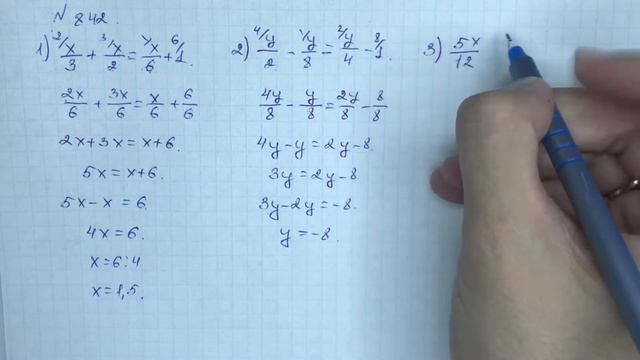 N 842.
1) ²/x/3 + ³/x/2 = ¹/x/6 + ⁶/1.
2x/6 + 3x/6 = x/6 + 6/6
2x+3x = x+6.
5x = x+6.
5x-x = 6.
4x = 6.
x = 6:4
x = 1,5.
2) ⁴/y/2 - ¹/y/8 = ²/y/4 - ⁸/1.
4y/8 - y/8 = 2y/8 - 8/8
4y-y = 2y-8.
3y = 2y-8.
3y-2y = -8.
y = -8.
3) 5x/12